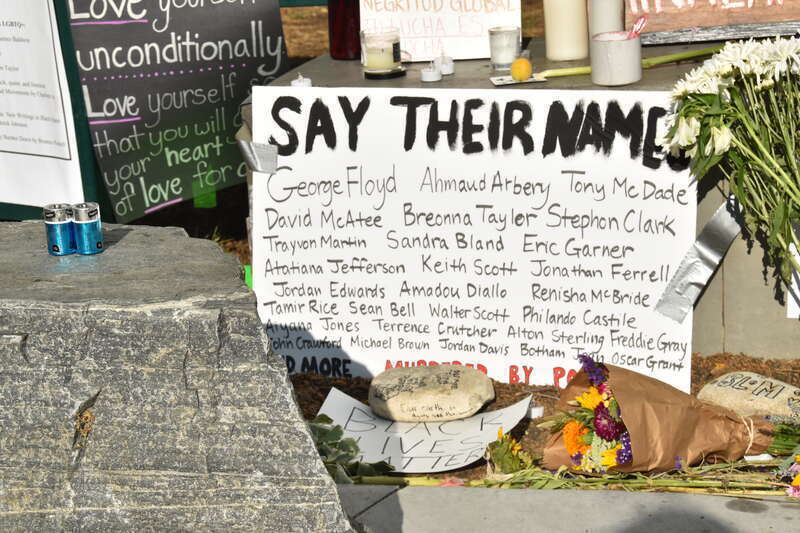 LGBTQ+
Love yourself
unconditionally.
Love yourself so
that you will
your heart
of love for a
NEGRITUD GLOBAL
LUCHA ES
SAY THEIR NAMES
George Floyd Ahmaud Arbery Tony McDade
David McAtee Breonna Taylor Stephon Clark
Trayvon Martin Sandra Bland Eric Garner
Atatiana Jefferson Keith Scott Jonathan Ferrell
Jordan Edwards Amadou Diallo Renisha McBride
Tamir Rice Sean Bell Walter Scott Philando Castile
Aiyana Jones Terrence Crutcher Alton Sterling Freddie Gray
John Crawford Michael Brown Jordan Davis Botham Jean Oscar Grant
AND MORE MURDERED BY PO
BLACK
LIVES
MATTER